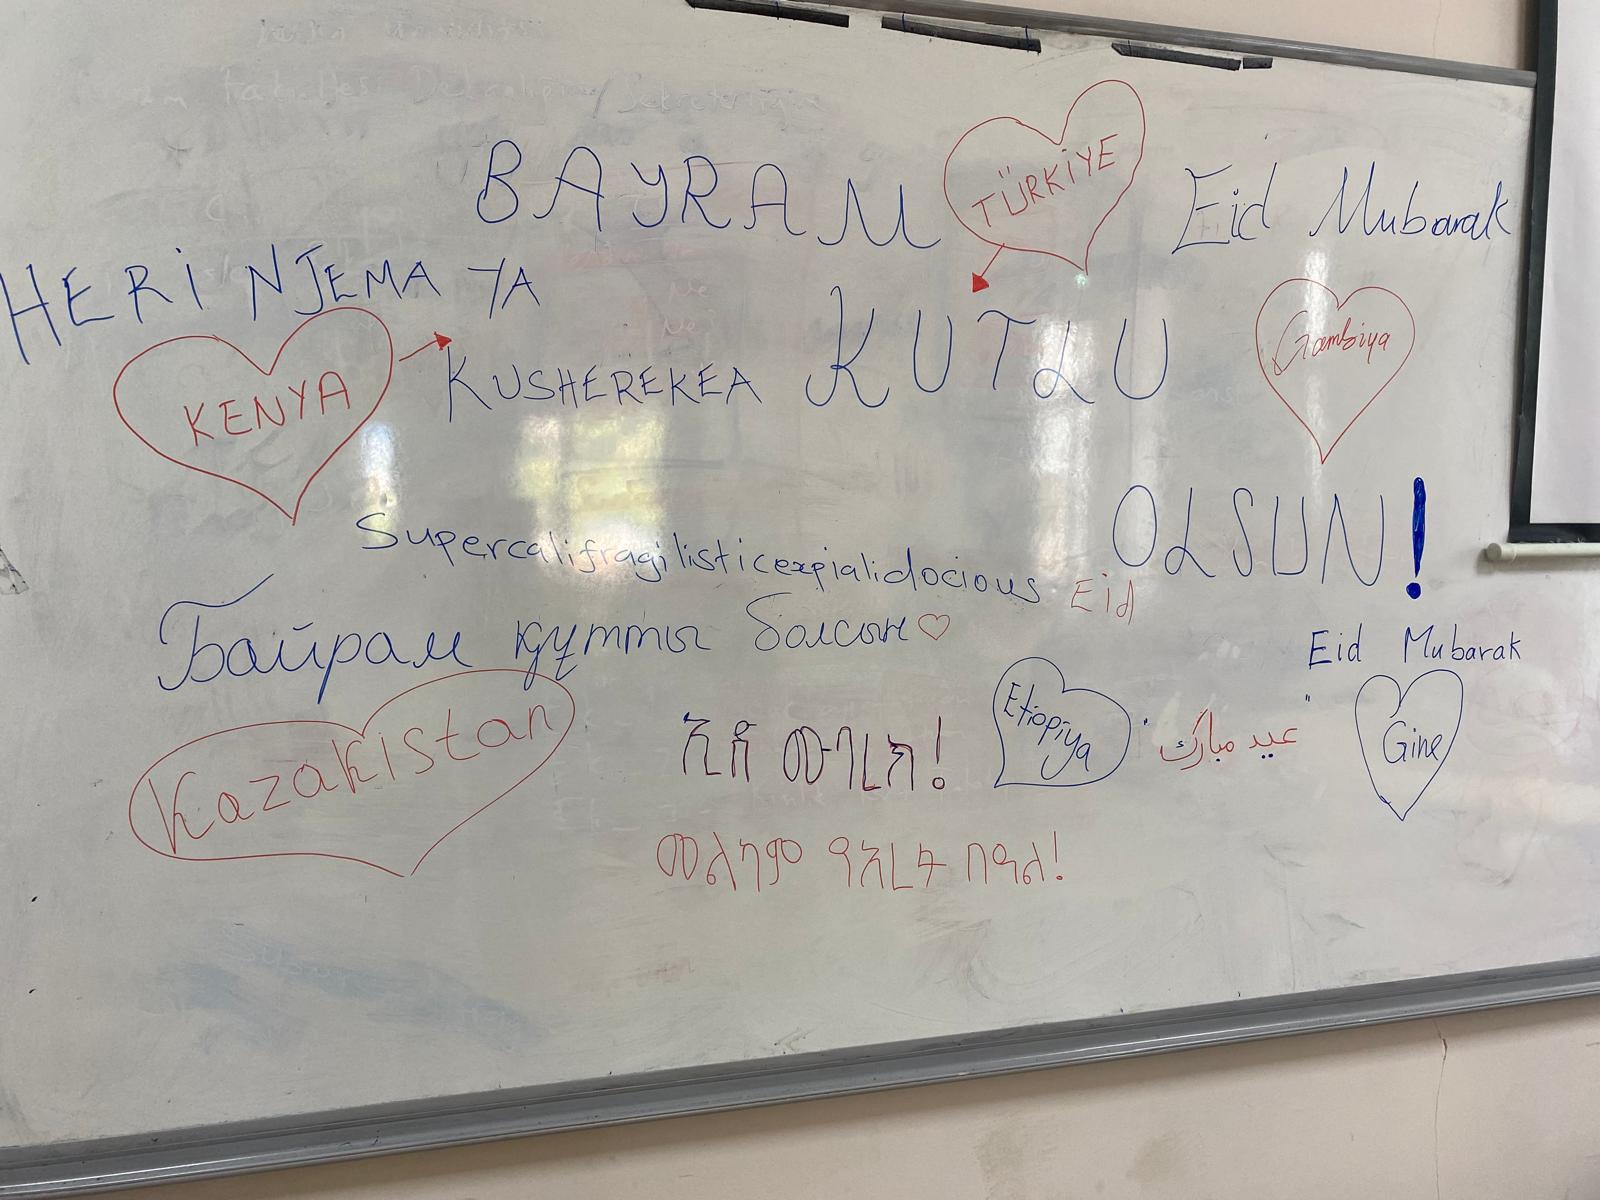 BAYRAM
TÜRKİYE
Eid Mubarak
HERI NJEMA YA
KUSHEREKEA
KUTLU
KENYA
Gambiya
OLSUN!
Supercalifragilisticexpialidocious Eid
Байрам құтты болсын
Eid Mubarak
Kazakistan
ኢድ ሙባረክ!
Etiopiya
"عيد مبارك"
Gine
መልካም የአረፋ በዓል!